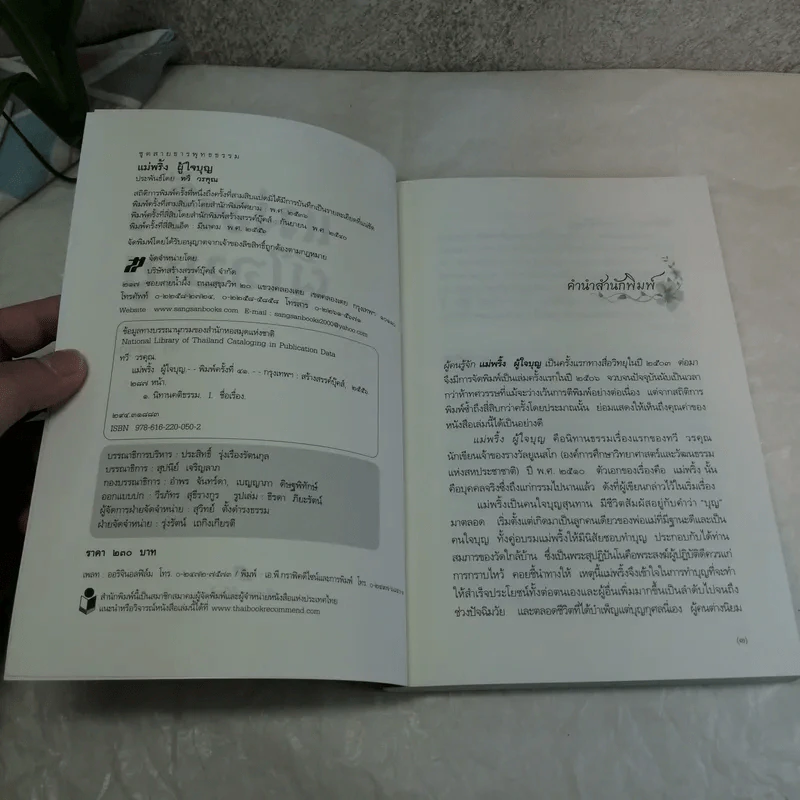 ชุดสายธารพุทธธรรม
แม่พริ้ง ผู้ใจบุญ
ประพันธ์โดย ทวี วรคุณ
สถิติการพิมพ์ครั้งที่หนึ่งถึงครั้งที่สามสิบแปดมิได้มีการบันทึกเป็นรายละเอียดที่แน่ชัด
พิมพ์ครั้งที่สามสิบเก้าโดยสำนักพิมพ์สยาม พ.ศ.
พิมพ์ครั้งที่สี่สิบโดยสำนักพิมพ์สร้างสรรค์บุ๊คส์ : กันยายน พ.ศ.
พิมพ์ครั้งที่สี่สิบเอ็ด มีนาคม พ.ศ. ๒๕๕๖
จัดพิมพ์โดยได้รับอนุญาตจากเจ้าของลิขสิทธิ์ถูกต้องตามกฎหมาย
จัดจำหน่ายโดย
บริษัทสร้างสรรค์บุ๊คส์ จำกัด
๒๑๗ ซอยสายน้ำผึ้ง ถนนสุขุมวิท ๒๐ แขวงคลองเตย เขตคลองเตย กรุงเทพฯ ๑๐๑๑๐
โทรศัพท์ ๐-๒๒๕๘-๒๗๒๔, ๐-๒๒๕๘-๕๘๕๘ โทรสาร
Website www.sangsanbooks.com E-mail : sangsanbooks2000@yahoo.com
ข้อมูลทางบรรณานุกรมของสำนักหอสมุดแห่งชาติ
National Library of Thailand Cataloging in Publication Data
ทวี วรคุณ.
แม่พริ้ง ผู้ใจบุญ.- - พิมพ์ครั้งที่ ๔๑.- - กรุงเทพฯ : สร้างสรรค์บุ๊คส์, ๒๕๕๖
๒๘๗ หน้า.
๑. นิทานคติธรรม. I. ชื่อเรื่อง.
๒๙๔.๓๑๘๘๓
ISBN 978-616-220-050-2
บรรณาธิการบริหาร : ประสิทธิ์ รุ่งเรืองรัตนกุล
บรรณาธิการ : สุปนีย์ เจริญลาภ
กองบรรณาธิการ : อำพร จันทร์ดา, เบญญาภา ดิษฐพิทักษ์
ออกแบบปก : วีรภัทร สุธีรางกูร รูปเล่ม : ธิรดา ภิยะรัตน์
ผู้จัดการฝ่ายจัดจำหน่าย : สุวิทย์ ตั้งดำรงธรรม
ฝ่ายจัดจำหน่าย : รุ่งรัตน์ เถกิงเกียรติ
ราคา ๒๓๐ บาท
เพลท ออริจินอลฟิล์ม โทร. ๐-๒๔๗๒-๗๕๓๓ / พิมพ์ เอ.พี.กราฟิคดีไซน์และการพิมพ์ โทร.
สำนักพิมพ์นี้เป็นสมาชิกสมาคมผู้จัดพิมพ์และผู้จำหน่ายหนังสือแห่งประเทศไทย
แนะนำหรือวิจารณ์หนังสือเล่มนี้ได้ที่ www.thaibookrecommend.com
คำนำสำนักพิมพ์
ผู้คนรู้จัก แม่พริ้ง ผู้ใจบุญ เป็นครั้งแรกทางสื่อวิทยุในปี ๒๕๐๓ ต่อมา
จึงมีการจัดพิมพ์เป็นเล่มครั้งแรกในปี ๒๕๐๖ จวบจนปัจจุบันนับเป็นเวลา
กว่าห้าทศวรรษที่แม้จะว่างเว้นการตีพิมพ์อย่างต่อเนื่อง แต่จากสถิติการ
พิมพ์ซ้ำถึงสี่สิบกว่าครั้งโดยประมาณนั้น ย่อมแสดงให้เห็นถึงคุณค่าของ
หนังสือเล่มนี้ได้เป็นอย่างดี
แม่พริ้ง ผู้ใจบุญ คือนิทานธรรมเรื่องแรกของทวี วรคุณ
นักเขียนเจ้าของรางวัลยูเนสโก (องค์การศึกษาวิทยาศาสตร์และวัฒนธรรม
แห่งสหประชาชาติ) ปี พ.ศ. ๒๕๑๐ ตัวเอกของเรื่องคือ แม่พริ้ง นั้น
คือบุคคลจริงซึ่งถึงแก่กรรมไปนานแล้ว ดังที่ผู้เขียนกล่าวไว้ในเริ่มเรื่อง
แม่พริ้งเป็นคนใจบุญสุนทาน มีชีวิตสัมผัสอยู่กับคำว่า "บุญ"
มาตลอด เริ่มตั้งแต่เกิดมาเป็นลูกคนเดียวของพ่อแม่ที่มีฐานะดีและเป็น
คนใจบุญ ทั้งคู่อบรมแม่พริ้งให้มีนิสัยชอบทำบุญ ประกอบกับได้ท่าน
สมภารของวัดใกล้บ้าน ซึ่งเป็นพระสุปฏิปันโนคือพระสงฆ์ผู้ปฏิบัติดีควรแก่
การกราบไหว้ คอยชี้นำทางให้ เหตุนี้แม่พริ้งจึงเข้าใจในการทำบุญที่จะทำ
ให้สำเร็จประโยชน์ทั้งต่อตนเองและผู้อื่นเพิ่มมากขึ้นเป็นลำดับไปจนถึง
ช่วงปัจฉิมวัย และตลอดชีวิตที่ได้บำเพ็ญแต่บุญกุศลนี่เอง ผู้คนต่างนิยม